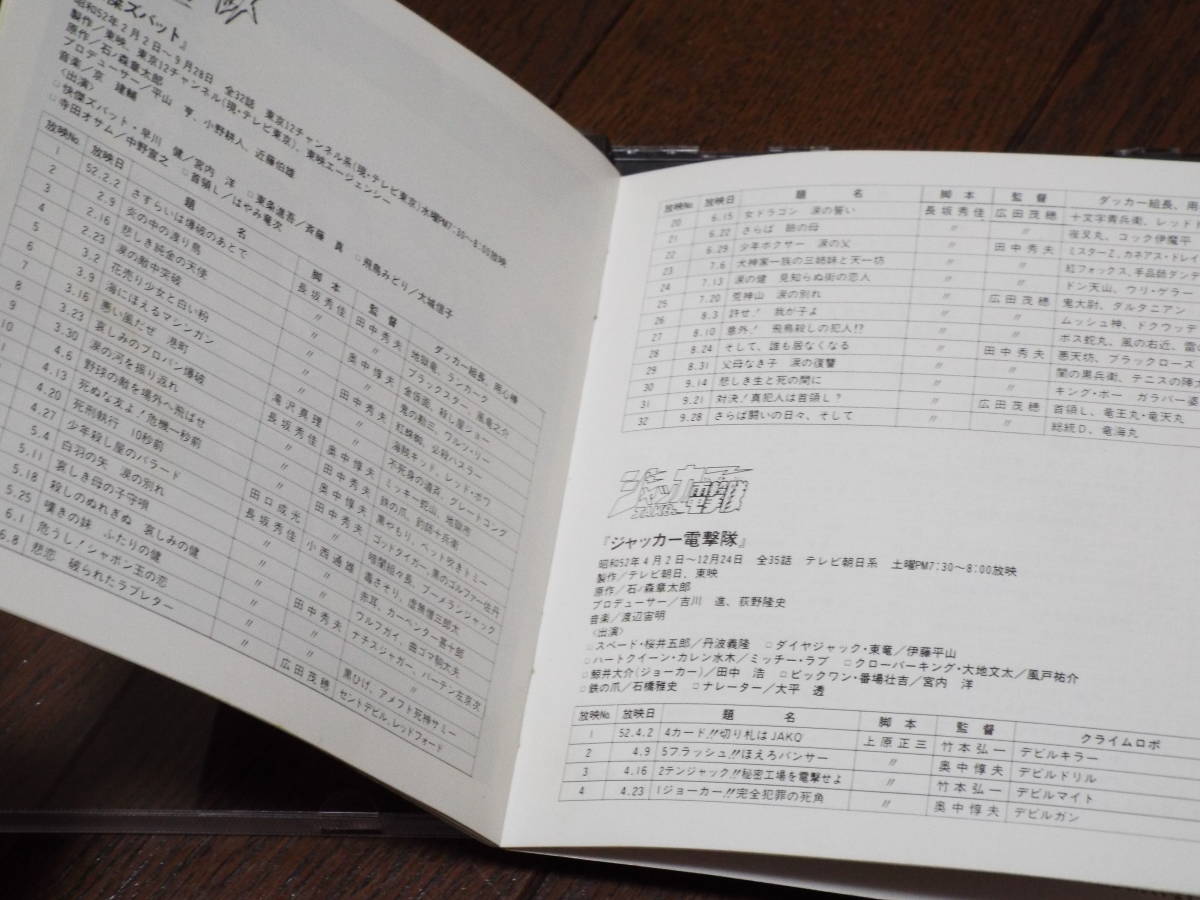 傑ズバット』
昭和52年2月2日～9月28日 全32話 東京12チャンネル系(現・テレビ東京)水曜PM7:30～8:00放映
製作／東映、東京12チャンネル(現・テレビ東京)、東映エージェンシー
原作／石ノ森章太郎
プロデューサー／平山 亨、小野耕人、近藤伯雄
音楽／京 建輔
〈出演〉
□快傑ズバット・早川 健／宮内 洋 □東条進吾／斉藤 真 □飛鳥みどり／大城信子
□寺田オサム／中野宣之 □首領L／はやみ竜次
放映No. 放映日 題 名 脚本 監督 ダッカー組長、用心棒
1 52.2.2 さすらいは爆破のあとで 長坂秀佳 田中秀夫 地獄竜、ランカーク
2 2.9 炎の中の渡り鳥 〃 〃 ブラックスター、風流之介
3 2.16 悲しき純金の天使 〃 奥中惇夫 金仮面、殺し屋ジョー
4 2.23 涙の敵中突破 〃 〃 鬼の勘三、ワルツ・リー
5 3.2 花売り少女と白い粉 〃 田中秀夫 紅蜘蛛、必殺ハスラー
6 3.9 海にほえるマシンガン 〃 〃 海賊キッド、レッド・ボワ
7 3.16 悪い風だぜ 港町 滝沢真理 奥中惇夫 不死身の道斉、グレートコング
8 3.23 哀しみのプロパン爆破 長坂秀佳 田中秀夫 ミッキー蛇山、地獄市
9 3.30 涙の河を振り返れ 〃 奥中惇夫 鉄の爪、釣師十兵衛
10 4.6 野球の敵を場外へ飛ばせ 田口成光 田中秀夫 黒やもり、ペット吹きトミー
4.13 死ぬな友よ！危機一秒前 長坂秀佳 〃 ゴッドタイガー、黒のゴルファー佐丹
4.20 死刑執行 10秒前 〃 小西通雄 暗闇組々長、ブーメランジャック
4.27 少年殺し屋のバラード 〃 〃 毒さそり、虚無僧三郎太
5.4 白羽の矢 涙の別れ 〃 田中秀夫 赤耳、カーペンター甚十郎
5.11 哀しき母の子守唄 〃 〃 ウルフガイ、曲ゴマ駒太夫
5.18 殺しのぬれぎぬ 哀しみの健 〃 〃 ナチスジャガー、バーテン左京次
5.25 嘆きの妹 ふたりの健
6.1 危うし！シャボン玉の恋 〃 〃 黒ひげ、アメフト死神サミー
6.8 悲恋 破られたラブレター 〃 広田茂穂 セントデビル、レッドフォード
放映No. 放映日 題 名 脚本 監督 ダッカー組長、用
20 6.15 女ドラゴン 涙の誓い 長坂秀佳 広田茂穂 十文字青兵衛、レッド
21 6.22 さらば 瞼の母 〃 〃 夜叉丸、コック伊魔平
22 6.29 少年ボクサー 涙の父 〃 田中秀夫 ミスターZ、カネアス・ドレイ
23 7.6 犬神家一族の三姉妹と天一坊 〃 〃 紅フォックス、手品師ダンテ
24 7.13 涙の健 見知らぬ街の恋人 〃 〃 ドン天山、ウリ・ゲラー
25 7.20 荒神山 涙の別れ 〃 広田茂穂 鬼大尉、ダルタニアン
26 8.3 許せ！ 我が子よ 〃 〃 ムッシュ神、ドクウッデ
27 8.10 意外！ 飛鳥殺しの犯人!? 〃 〃 ボス蛇丸、風の右近、雷の
28 8.24 そして、誰も居なくなる 〃 田中秀夫 悪天坊、ブラックローズ
29 8.31 父母なき子 涙の復讐 〃 〃 闇の黒兵衛、テニスの陣大
30 9.14 悲しき生と死の間に 〃 〃 キング・ボー ガラバー婆
31 9.21 対決！真犯人は首領L？ 〃 広田茂穂 首領L、竜王丸・竜天丸
32 9.28 さらば闘いの日々、そして 〃 〃 総統D、竜海丸
ジャッカー電撃隊
JAKQ
『ジャッカー電撃隊』
昭和52年4月2日～12月24日 全35話 テレビ朝日系 土曜PM7:30～8:00放映
製作／テレビ朝日、東映
原作／石ノ森章太郎
プロデューサー／吉川 進、荻野隆史
音楽／渡辺宙明
〈出演〉
□スペード・桜井五郎／丹波義隆 □ダイヤジャック・東竜／伊藤平山
□ハートクイーン・カレン水木／ミッチー・ラブ □クローバーキング・大地文太／風戸祐介
□鯨井大介(ジョーカー)／田中 浩 □ビックワン・番場壮吉／宮内 洋
□鉄の爪／石橋雅史 □ナレーター／大平 透
放映No. 放映日 題 名 脚本 監督 クライムロボ
1 52.4.2 4カード!!切り札はJAKQ 上原正三 竹本弘一 デビルキラー
2 4.9 5フラッシュ!!ほえろパンサー 〃 奥中惇夫 デビルドリル
3 4.16 2テンジャック!!秘密工場を電撃せよ 〃 竹本弘一 デビルマイト
4 4.23 1ジョーカー!!完全犯罪の死角 〃 奥中惇夫 デビルガン